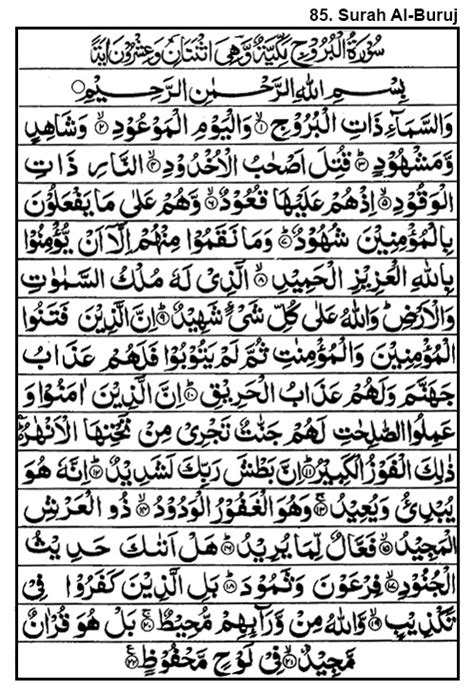 85. Surah Al-Buruj
سُوْرَةُ الْبُرُوْجِ مَكِّيَّةٌ وَّهِيَ اثْنَتَانِ وَعِشْرُوْنَ اٰيَةً
بِسْمِ اللهِ الرَّحْمٰنِ الرَّحِيْمِ ○
وَالسَّمَآءِ ذَاتِ الْبُرُوْجِ ۙ﴿۱﴾ وَالْيَوْمِ الْمَوْعُوْدِ ۙ﴿۲﴾ وَشَاهِدٍ
وَّمَشْهُوْدٍ ؕ﴿۳﴾ قُتِلَ اَصْحٰبُ الْاُخْدُوْدِ ۙ﴿۴﴾ النَّارِ ذَاتِ
الْوَقُوْدِ ۙ﴿۵﴾ اِذْ هُمْ عَلَيْهَا قُعُوْدٌ ۙ﴿۶﴾ وَّهُمْ عَلٰى مَا يَفْعَلُوْنَ
بِالْمُؤْمِنِيْنَ شُهُوْدٌ ؕ﴿۷﴾ وَمَا نَقَمُوْا مِنْهُمْ اِلَّاۤ اَنْ يُّؤْمِنُوْا
بِاللهِ الْعَزِيْزِ الْحَمِيْدِ ۙ﴿۸﴾ الَّذِيْ لَهٗ مُلْكُ السَّمٰوٰتِ
وَالْاَرْضِ ؕ وَاللهُ عَلٰى كُلِّ شَيْءٍ شَهِيْدٌ ؕ﴿۹﴾ اِنَّ الَّذِيْنَ فَتَنُوا
الْمُؤْمِنِيْنَ وَالْمُؤْمِنٰتِ ثُمَّ لَمْ يَتُوْبُوْا فَلَهُمْ عَذَابُ
جَهَنَّمَ وَلَهُمْ عَذَابُ الْحَرِيْقِ ؕ﴿۱۰﴾ اِنَّ الَّذِيْنَ اٰمَنُوْا وَ
عَمِلُوا الصّٰلِحٰتِ لَهُمْ جَنّٰتٌ تَجْرِيْ مِنْ تَحْتِهَا الْاَنْهٰرُ ؕ
ذٰلِكَ الْفَوْزُ الْكَبِيْرُ ؕ﴿۱۱﴾ اِنَّ بَطْشَ رَبِّكَ لَشَدِيْدٌ ؕ﴿۱۲﴾ اِنَّهٗ هُوَ
يُبْدِئُ وَيُعِيْدُ ۚ﴿۱۳﴾ وَهُوَ الْغَفُوْرُ الْوَدُوْدُ ۙ﴿۱۴﴾ ذُو الْعَرْشِ
الْمَجِيْدُ ۙ﴿۱۵﴾ فَعَّالٌ لِّمَا يُرِيْدُ ؕ﴿۱۶﴾ هَلْ اَتٰىكَ حَدِيْثُ
الْجُنُوْدِ ۙ﴿۱۷﴾ فِرْعَوْنَ وَثَمُوْدَ ؕ﴿۱۸﴾ بَلِ الَّذِيْنَ كَفَرُوْا فِيْ
تَكْذِيْبٍ ۙ﴿۱۹﴾ وَّاللهُ مِنْ وَّرَآئِهِمْ مُّحِيْطٌ ۚ﴿۲۰﴾ بَلْ هُوَ قُرْاٰنٌ
مَّجِيْدٌ ۙ﴿۲۱﴾ فِيْ لَوْحٍ مَّحْفُوْظٍ ﴿۲۲﴾